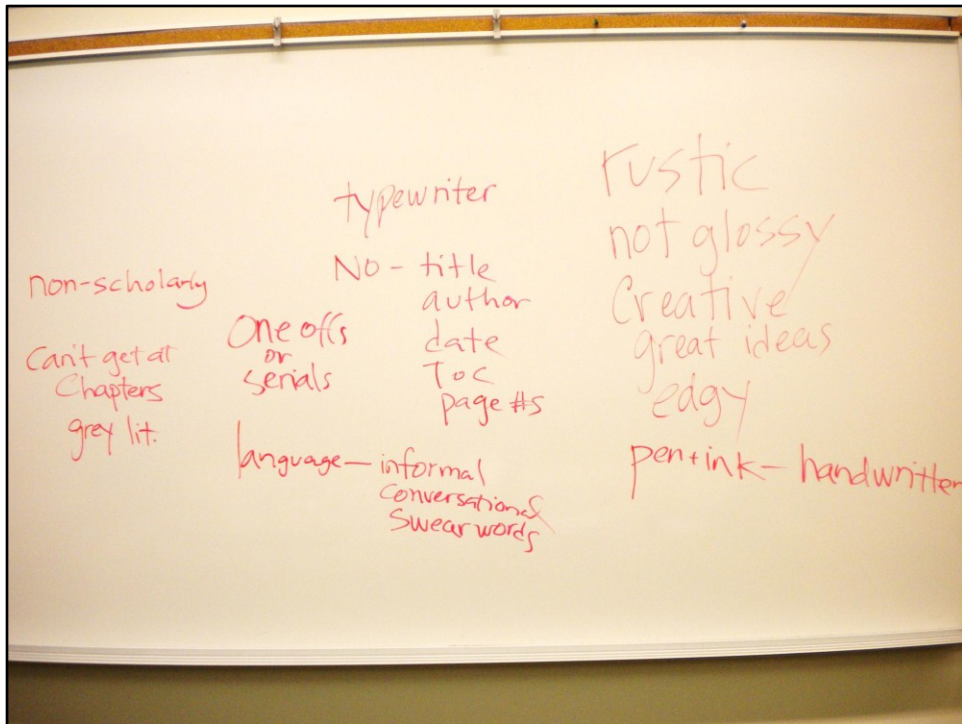 non-scholarly
Can't get at
Chapters
grey lit.
One offs
or
serials
typewriter
No - title
author
date
TOC
page #s
language - informal
conversational
swear words
rustic
not glossy
Creative
great ideas
edgy
pen + ink - handwritten